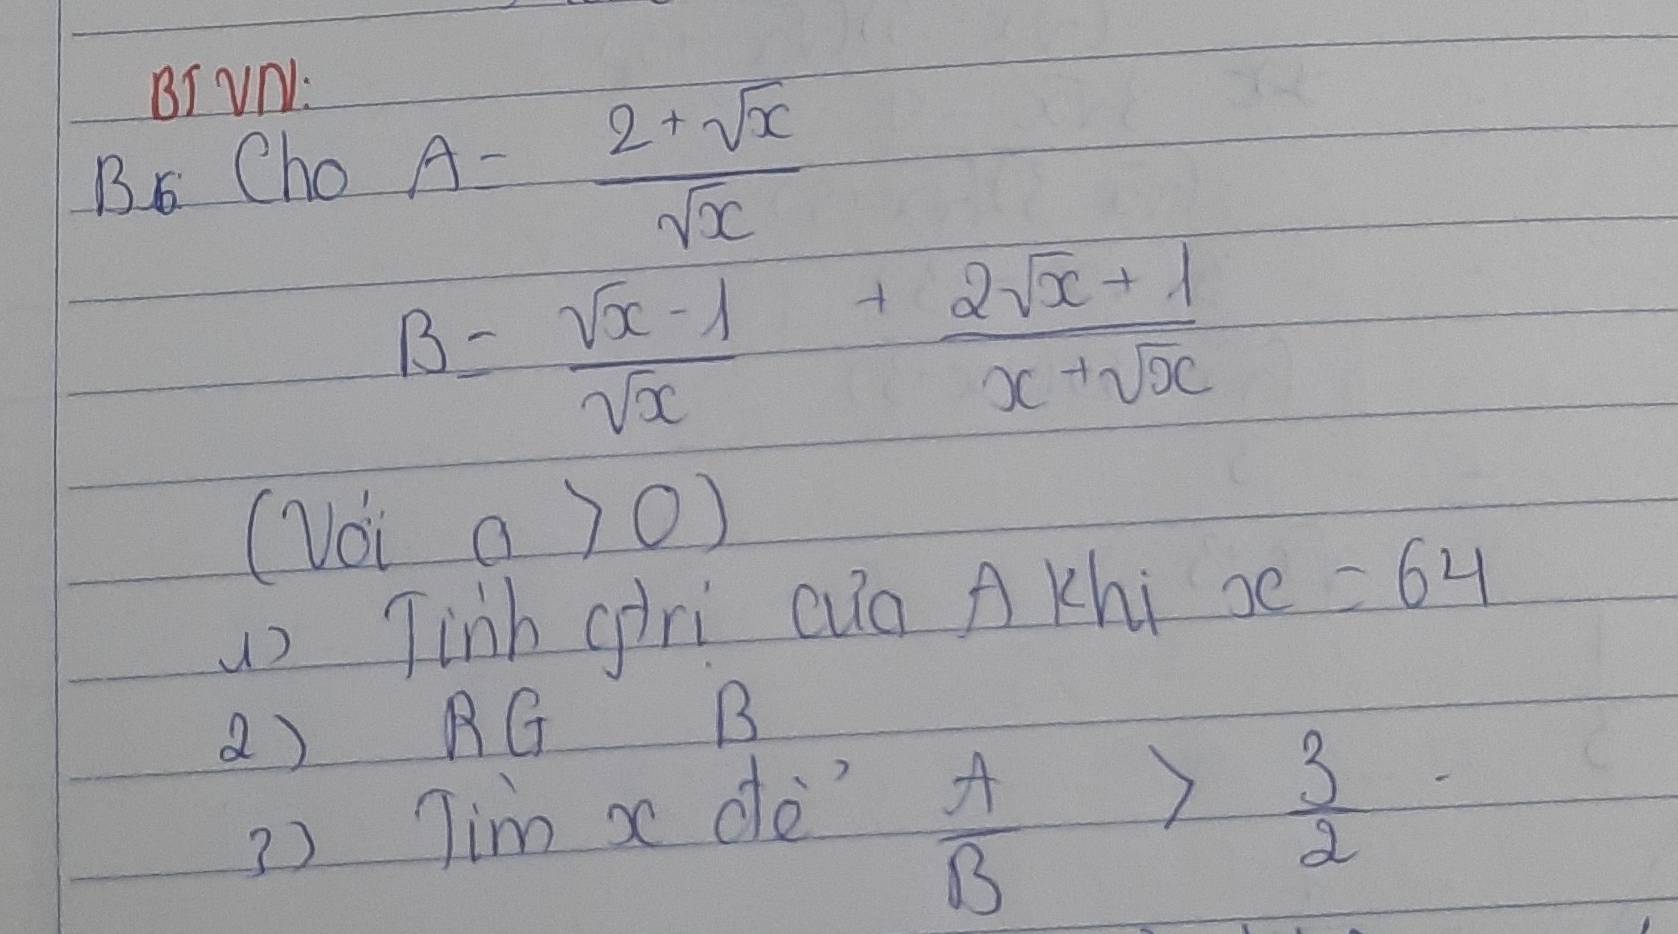 BTVN:
B6 Cho A = \frac{2 + \sqrt{x}}{\sqrt{x}}
B = \frac{\sqrt{x} - 1}{\sqrt{x}} + \frac{2\sqrt{x} + 1}{x + \sqrt{x}}
(Với a > 0)
1) Tính gtri của A khi x = 64
2) RG B
3) Tìm x để \frac{A}{B} > \frac{3}{2}.